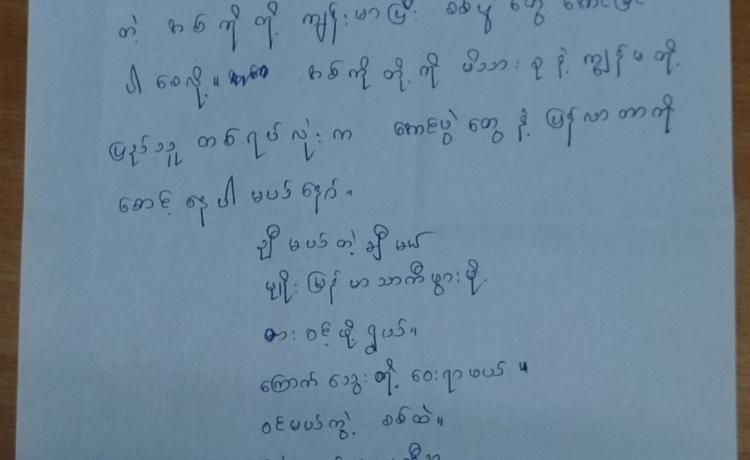 တဲ့ အစ်ကို တို့ ကျန်းမာပြီး စစ်ပွဲ တွေ အောင်မြင်
ပါ စေလို့။ အစ်ကို တို့ ကို မိသားစု နဲ့ ကျွန်မ တို့
ပြည်သူ တစ်ရပ်လုံး က အောင်ပွဲ တွေ နဲ့ ပြန်လာ တာကို
စောင့် နေ ပါ မယ် နော်။
ချီ မယ် တဲ့ ချီ မယ်
မျိုး မြန် မာ သာကီ ဖွား မို့
စား ဝင့် ဖို့ ရွယ်။
ကြောက် သွေး တို့ ဝေး ရာ မယ်။
ဝင် မယ် ကွဲ့ စစ် ထဲ။